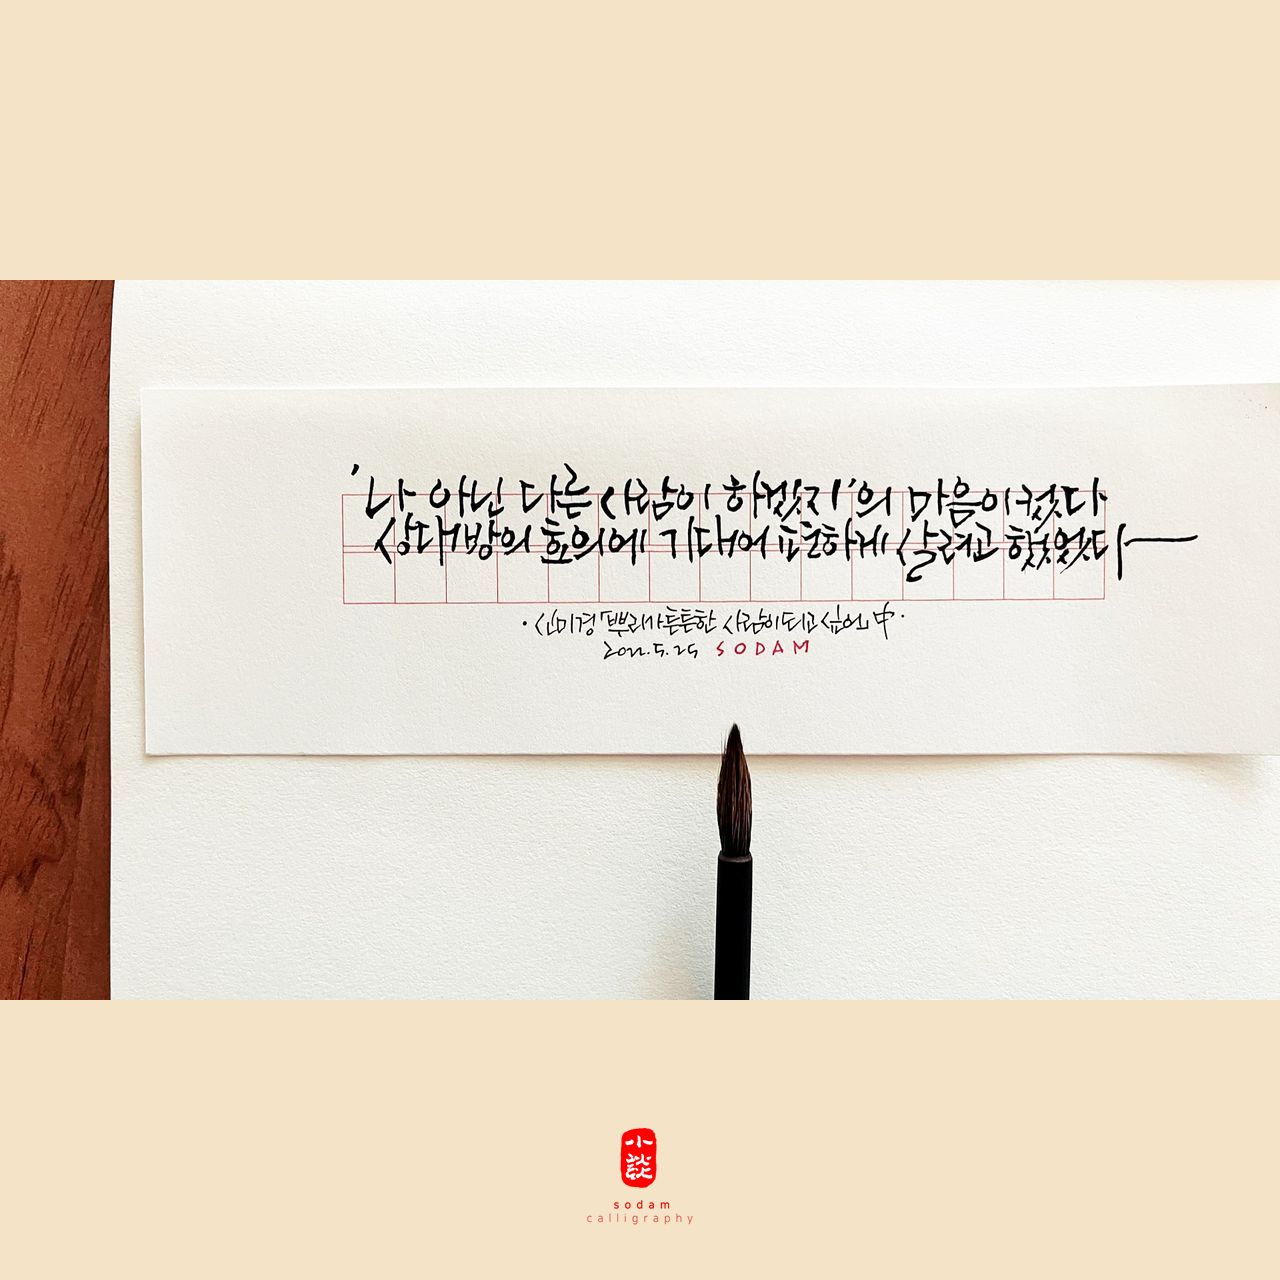 '나 아닌 다른 사람이 하겠지'의 마음이었다
상대방의 호의에 기대어 표준하게 살려고 했었었다
·신미경 「뿌리가 튼튼한 사람이 되고 싶어」 中·
2022.5.25 SODAM
小談
sodam
calligraphy